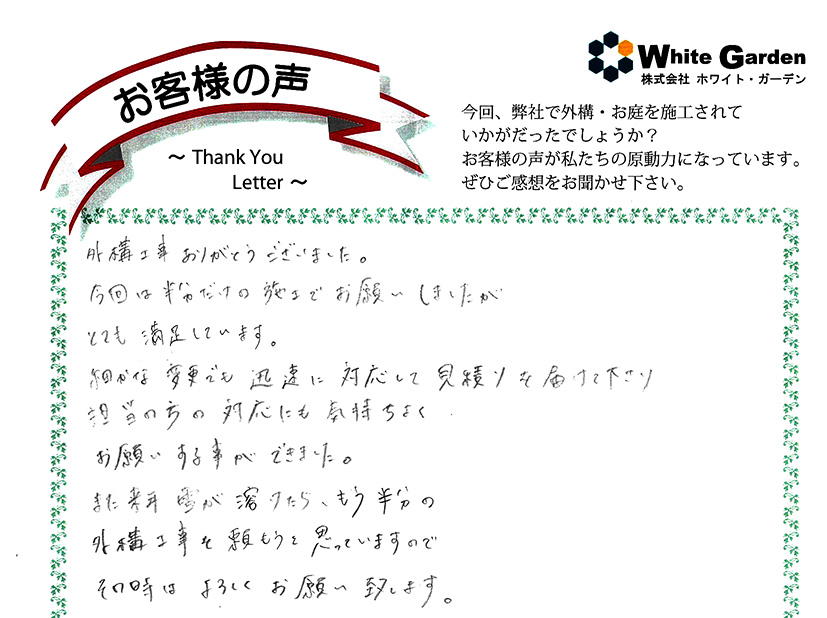 お客様の声
～ Thank You
Letter ～
White Garden
株式会社 ホワイト・ガーデン
今回、弊社で外構・お庭を施工されて
いかがだったでしょうか？
お客様の声が私たちの原動力になっています。
ぜひご感想をお聞かせ下さい。
外構工事ありがとうございました。
今回は半分だけの施工でお願いしましたが
とても満足しています。
細かな変更でも迅速に対応して見積りを届けて下さり
担当の方の対応にも気持ちよく
お願いする事ができました。
また来年雪が溶けたら、もう半分の
外構工事を願もうと思っていますので
その時はよろしくお願い致します。